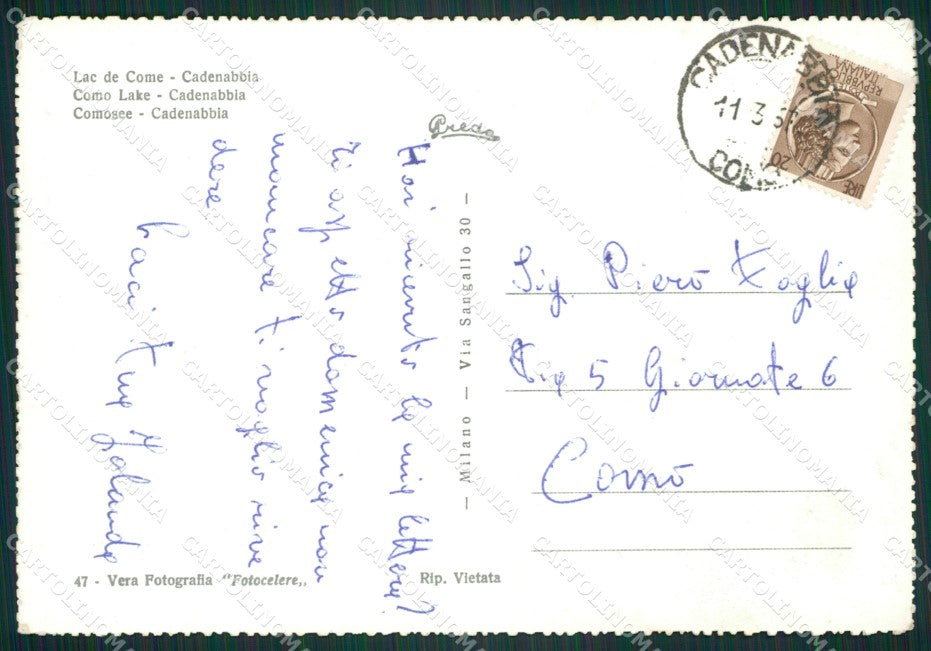 Lac de Come - Cadenabbia
Como Lake - Cadenabbia
Comosee - Cadenabbia
Preda
Hai ricevuto la mia lettera?
Ti aspetto domenica non
mancare ti voglio rive
dere
baci tua Jolanda
— Milano — Via Sangallo 30 —
CADENABBIA
11.3.5
COMO
REPUBBLICA
ITALIANA
LIRE 20
Sig. Piero Foglia
Via 5 Giornate 6
Como
47 - Vera Fotografia "Fotocelere„
Rip. Vietata
CARTOLINOMANIA